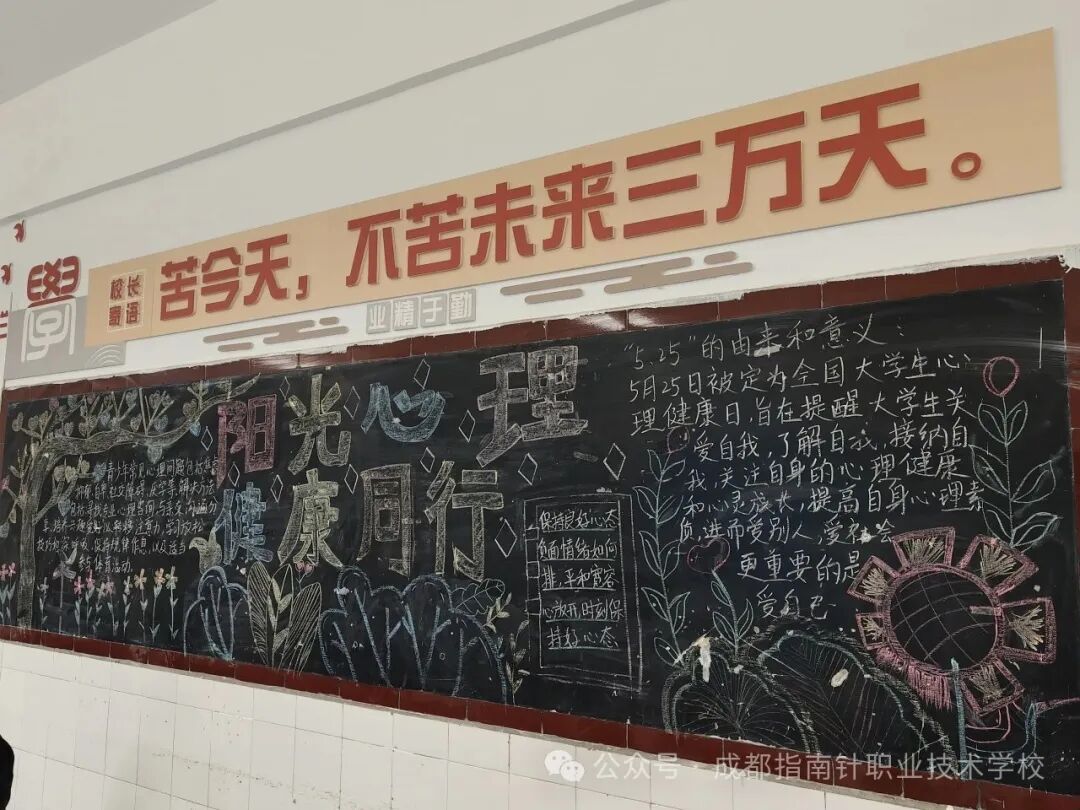 學
校长
寄语
苦今天，不苦未来三万天。
业精于勤
阳光心理
健康同行
青少年常见心理问题
保持良好心态
负面情绪如何
排,平和宽容
心放开时刻保
持好心态
"5.25"的由来和意义：
5月25日被定为全国大学生心
理健康日,旨在提醒大学生关
爱自我,了解自我,接纳自
我,关注自身的心理健康
和心灵成长,提高自身心理素
质,进而爱别人,爱社会
更重要的是
爱自己
公众号·成都指南针职业技术学校